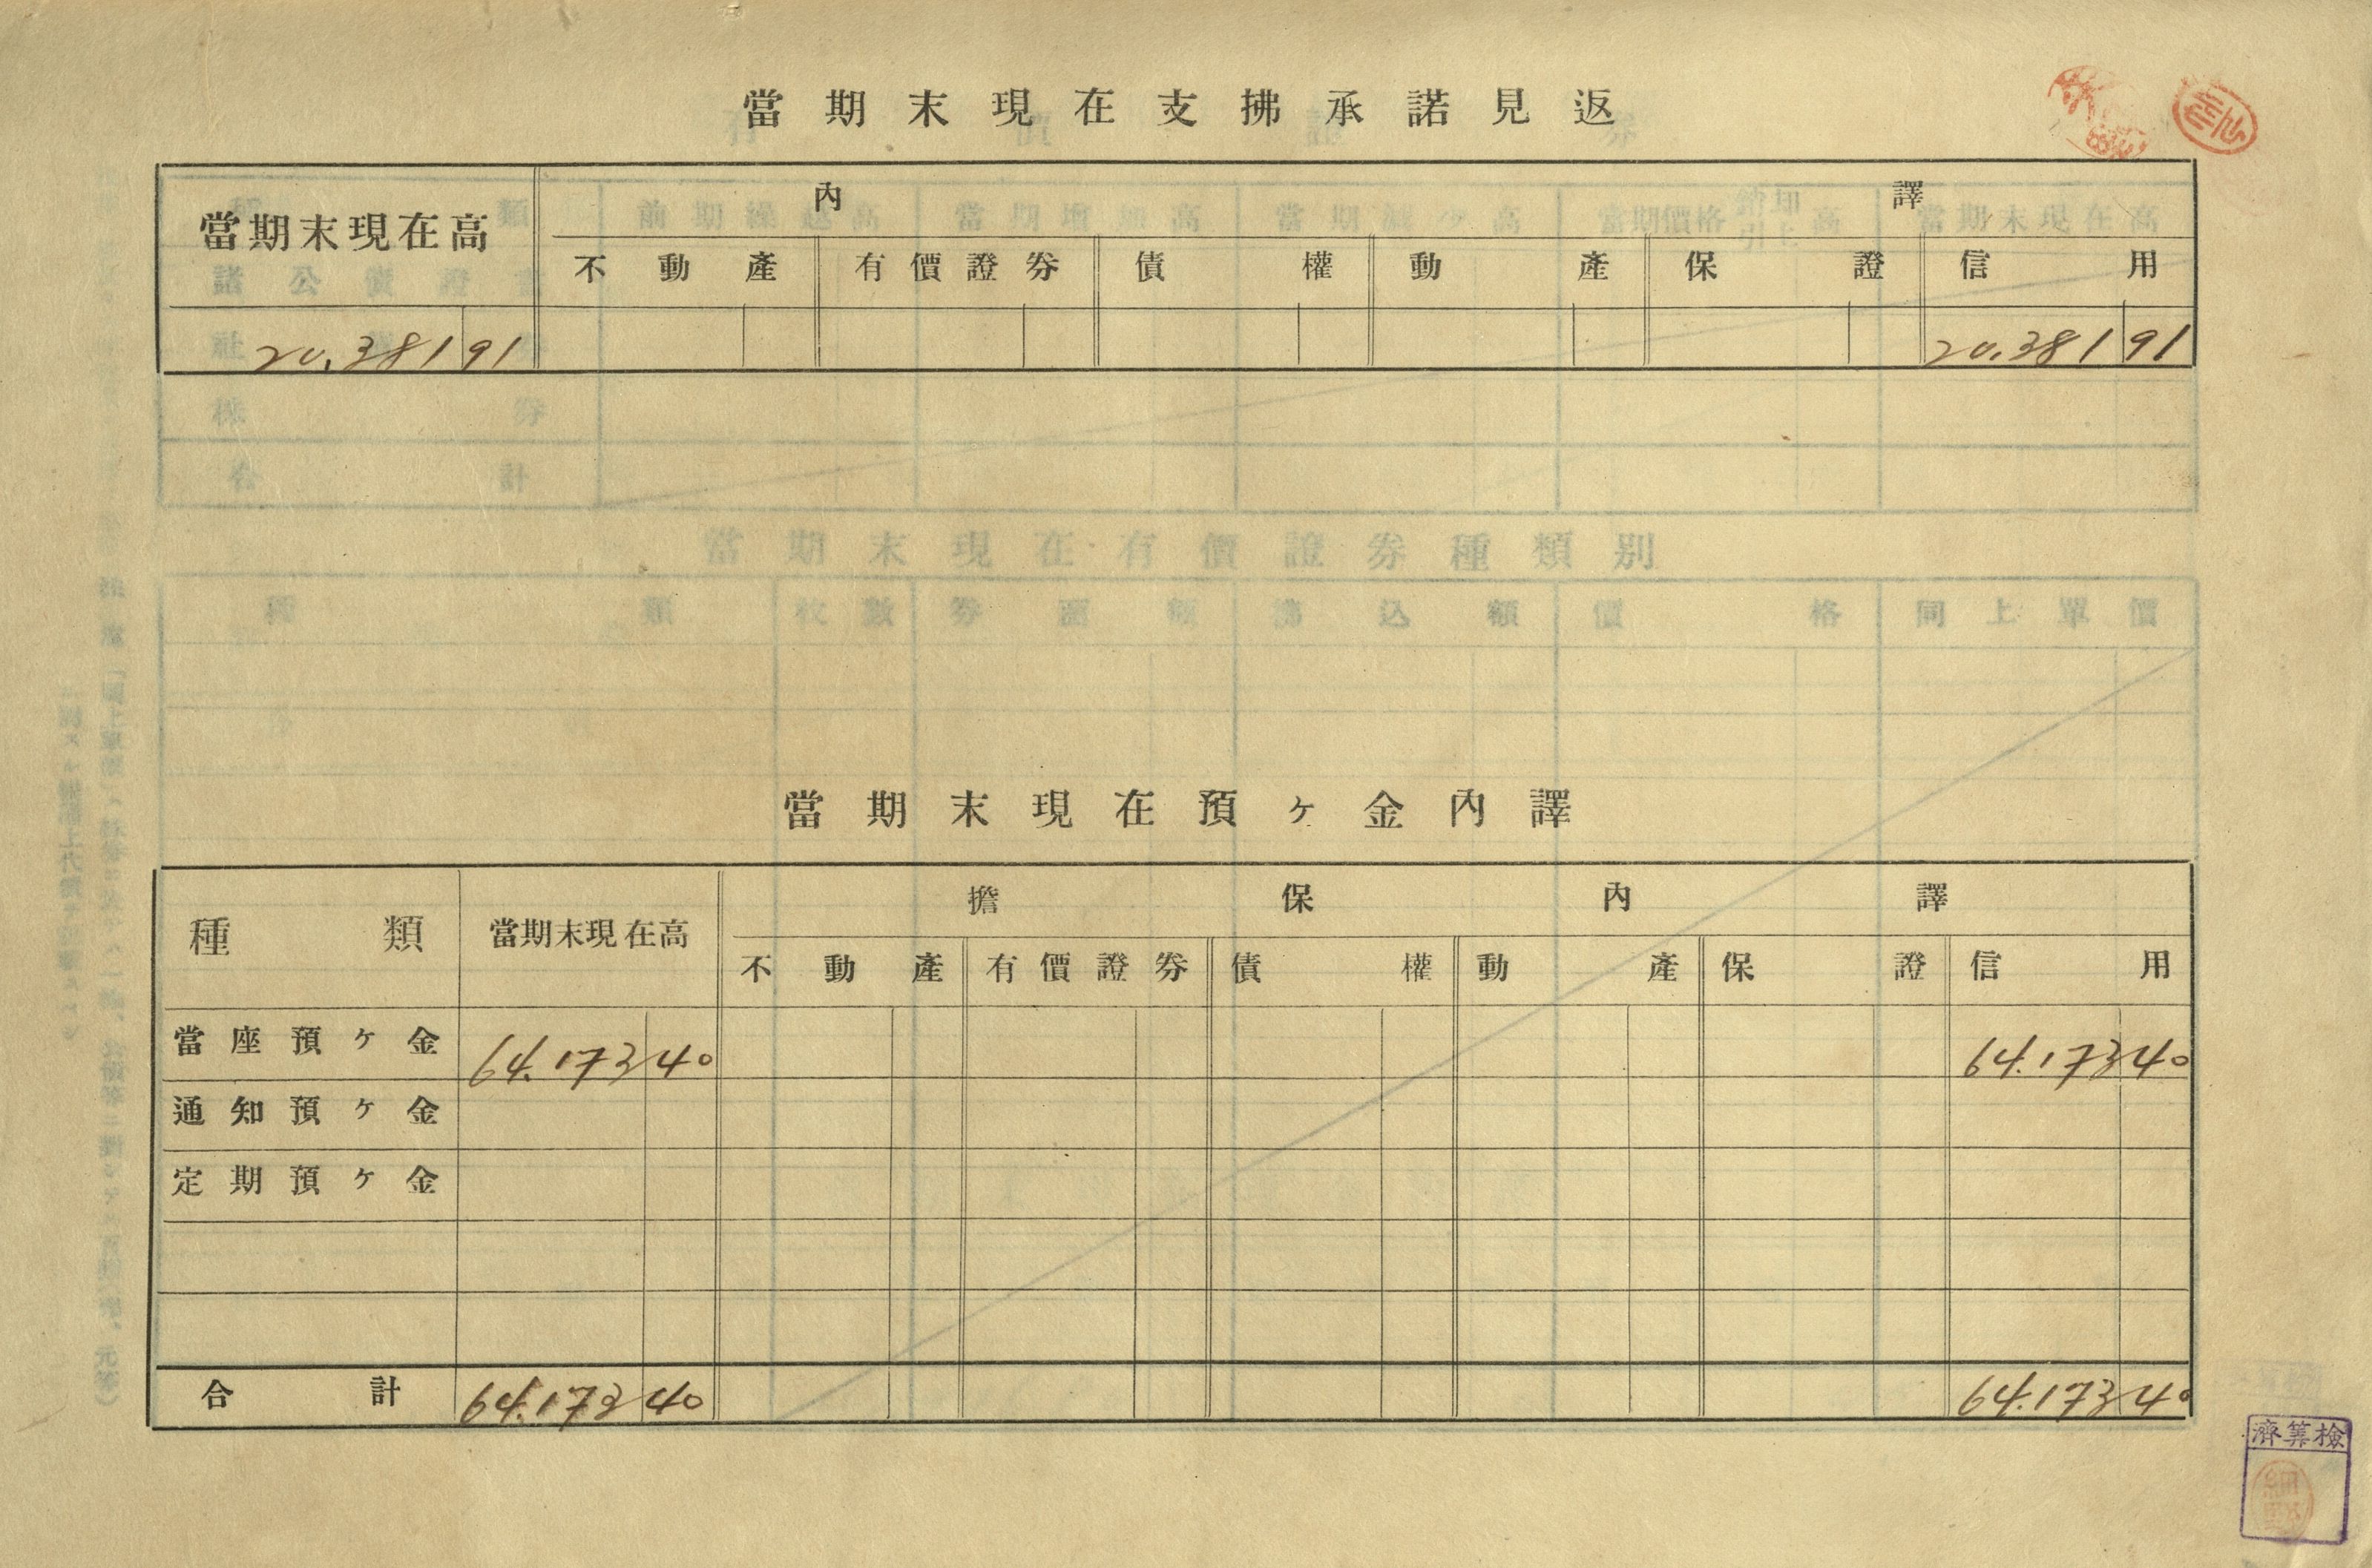 當期末現在支拂承諾見返
當期末現在高 內譯
不動產 有價證券 債權 動產 保證 信用
20.381 91 20.381 91
當期末現在預ヶ金內譯
種類 當期末現在高 擔保內譯
不動產 有價證券 債權 動產 保證 信用
當座預ヶ金 64.173 40 64.173 40
通知預ヶ金
定期預ヶ金
合計 64.173 40 64.173 40
濟筭檢